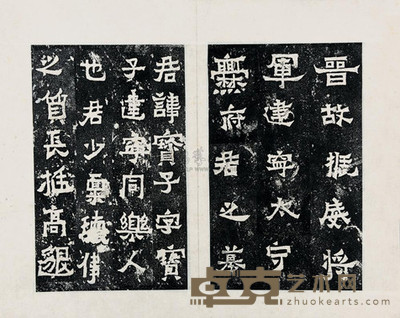 晉故振威將
軍建寧太守
爨府君之墓
君諱寶子字寶
子建寧同樂人
也君少稟瓌偉
之質長挺高邈
卓克艺术网
zhuokearts.com